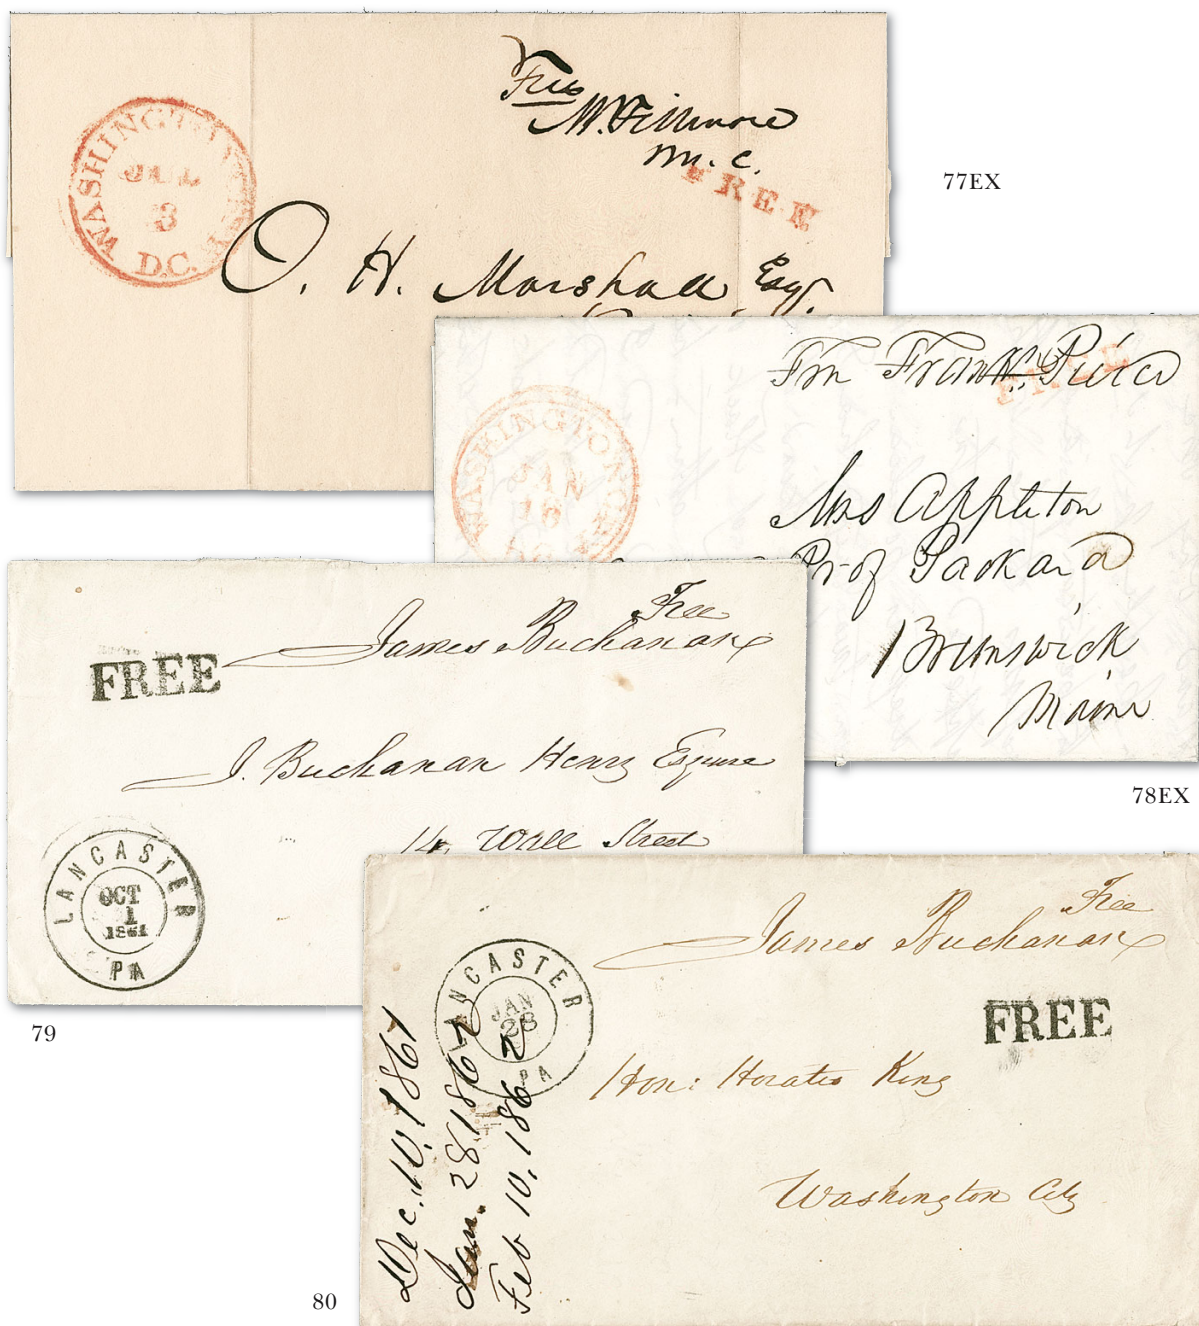 Free
M. Fillmore
m. c.
FREE
WASHINGTON CITY
JUL
3
D.C.
O. H. Marshall Esqr.
77EX
Fm Frank. Pierce
FREE
WASHINGTON CITY
JAN
16
D.C.
Mrs Appleton
Prof Packard
Brunswick
Maine
78EX
Free
James Buchanan
FREE
J. Buchanan Henry Esquire
14, Wall Street
LANCASTER
OCT
1
1861
PA
79
Free
James Buchanan
FREE
LANCASTER
JAN
28
PA
Hon: Horatio King
Washington City
Dec. 10, 1861
Jan. 28, 1862
Feb 10, 1862
80